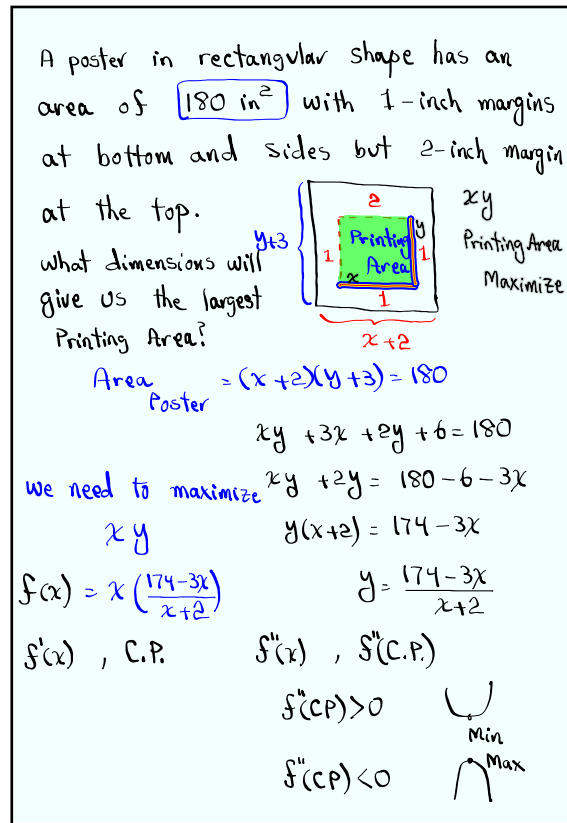 A poster in rectangular shape has an
area of 180 in² with 1-inch margins
at bottom and sides but 2-inch margin
at the top.
what dimensions will
give us the largest
Printing Area?
y+3
2
1
Printing
Area
y
1
x
1
x+2
xy
Printing Area
Maximize
Area Poster = (x+2)(y+3) = 180
xy +3x +2y +6 = 180
we need to maximize
xy
xy +2y = 180-6-3x
y(x+2) = 174-3x
f(x) = x((174-3x)/(x+2))
y = (174-3x)/(x+2)
f'(x) , C.P.
f"(x) , f"(C.P.)
f"(CP)>0
Min
f"(CP)<0
Max